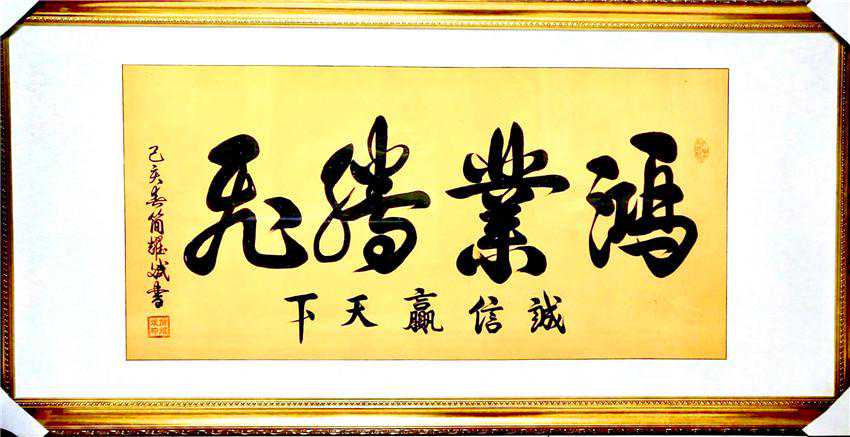 鴻業騰飛
誠信贏天下
己亥春简耀斌書